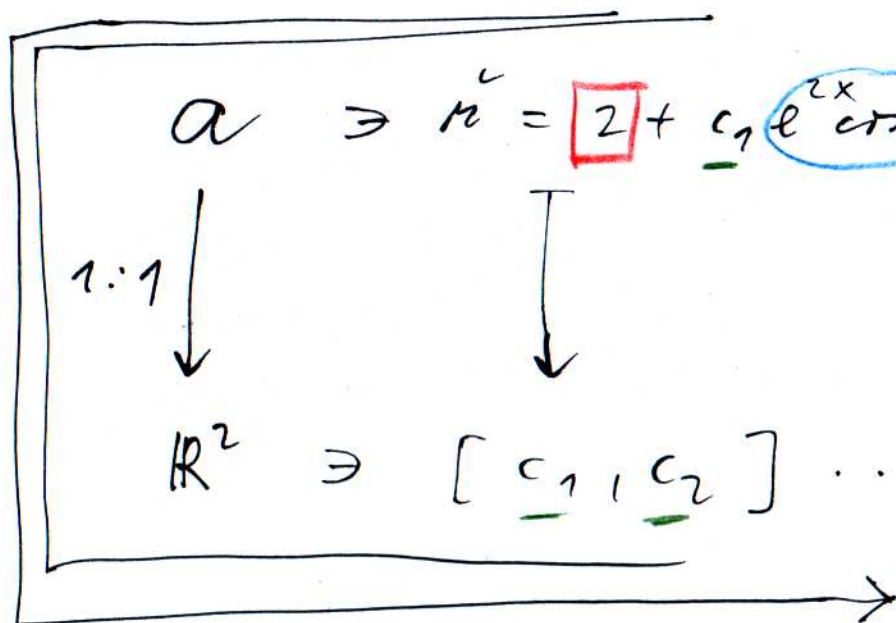 a ∋ r² = 2 + c₁ e^{2x} cos
1:1
ℝ² ∋ [ c₁ , c₂ ] ...